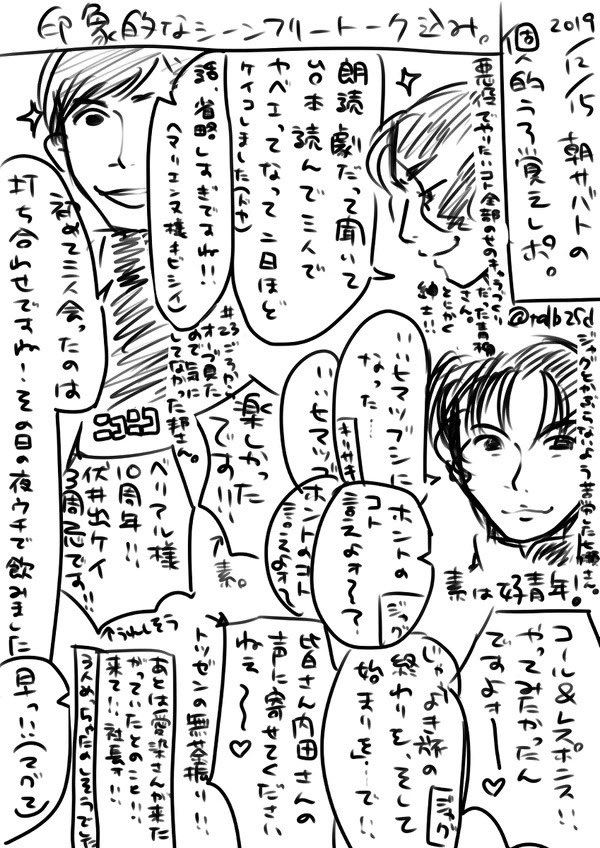 印象的なシーンフリートーク込み。
2019
12/15 朝サバトの
個人的うろ覚えレポ。
@talb2rd
悪役でやりたいコト全部のせの
だった青柳
さん。
とにかく
紳士!!
朗読劇だって聞いて
いざ本読んで三人で
ヤベェってなって二日ほど
ケイコしました(ドヤ)
話、省略しすぎですね!!
(マリエンヌ様キビシイ)
初めて三人会ったのは
打ち合わせですね!その日の夜ウチで飲みました
早っ!!(てつて)
#23ごろから
オーブ見た
ので気に
してなかった邦さん。
ニコニコ
楽しかった
です!!
素。
ベリアル様
10周年!!
伏井出ケイ
3周忌です!!
↑うれしそう
いいヒマツブシに
なった…
キリサキ
いいヒマツブ
ホントの
コト
言えよォ〜〜
ジャグ
ホントのコト
言えよォ〜
ジャグらしからないよう苦労した
さん。
素は好青年!
コール&レスポンス!!
やってみたかったん
ですよォ〜♡
じゃ、よき旅の
終わりを、そして
始まりを…で!!
ジャグ
皆さん内田さんの
声に寄せてください
ねぇ〜〜♡
トツゼンの無茶振り!!
あとは愛染さんが来た
がっていたとのこと!!
来て!!社長ォ!!
3人めっちゃたのしそうでした